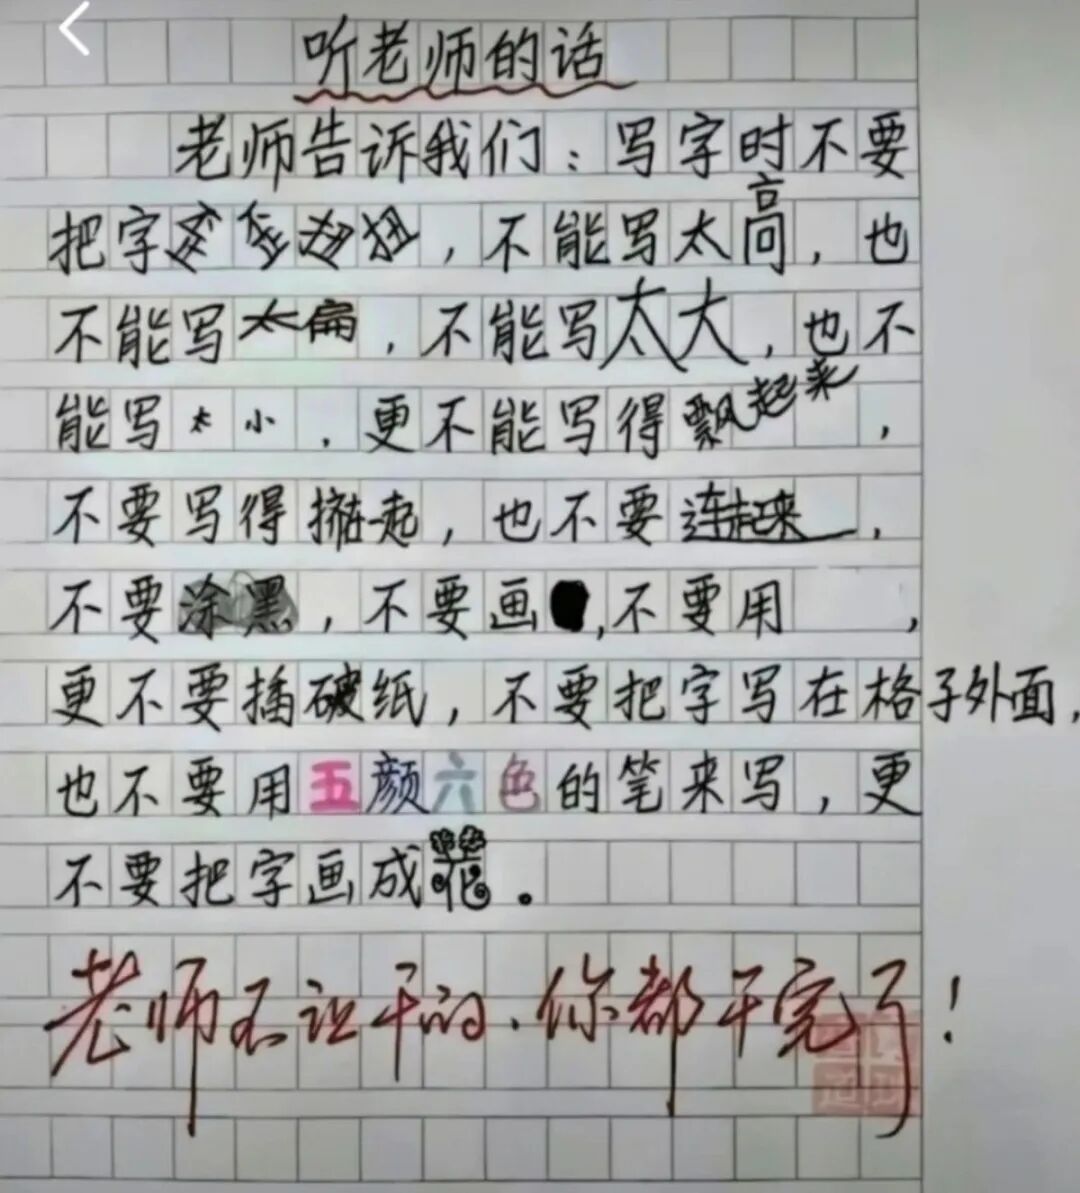 听老师的话
老师告诉我们：写字时不要
把字歪歪扭扭，不能写太高，也
不能写太扁，不能写太大，也不
能写太小，更不能写得飘起来，
不要写得挤在一起，也不要连起来，
不要涂黑，不要画，不要用，
更不要插破纸，不要把字写在格子外面，
也不要用五颜六色的笔来写，更
不要把字画成花。
老师不让干的，你都干完了！